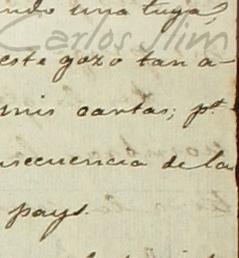 ndo una tuya,
Carlos Slim
este gozo tan a-
mis cartas; pr.
nsecuencia de la
pays.